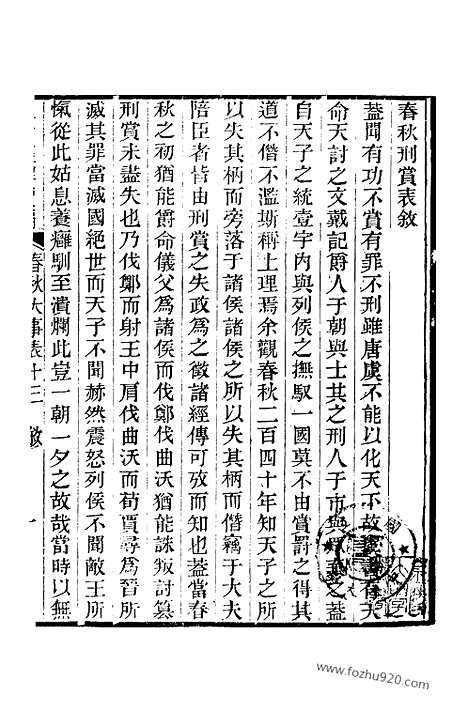 春秋刑賞表敘
蓋聞有功不賞有罪不刑雖唐虞不能以化天下故書有天
命天討之文戴記爵人于朝與士其之刑人于市與眾棄之蓋
自天子之統壹宇內與列侯之撫馭一國莫不由賞罰之得其
道不僭不濫斯稱上理焉余觀春秋二百四十年知天子之所
以失其柄而旁落于諸侯諸侯之所以失其柄而僭竊于大夫
陪臣者皆由刑賞之失政為之徵諸經傳可攷而知也蓋當春
秋之初猶能爵命儀父為諸侯而伐鄭伐曲沃猶能誅叛討篡
刑賞未盡失也乃伐鄭而射王中肩伐曲沃而荀賈尋為晉所
滅其罪當滅國絕世而天子不聞赫然震怒列侯不聞敵王所
愾從此姑息養癰馴至潰爛此豈一朝一夕之故哉當時以無
春秋大事表十三 敘 一
www.fozhu920.com